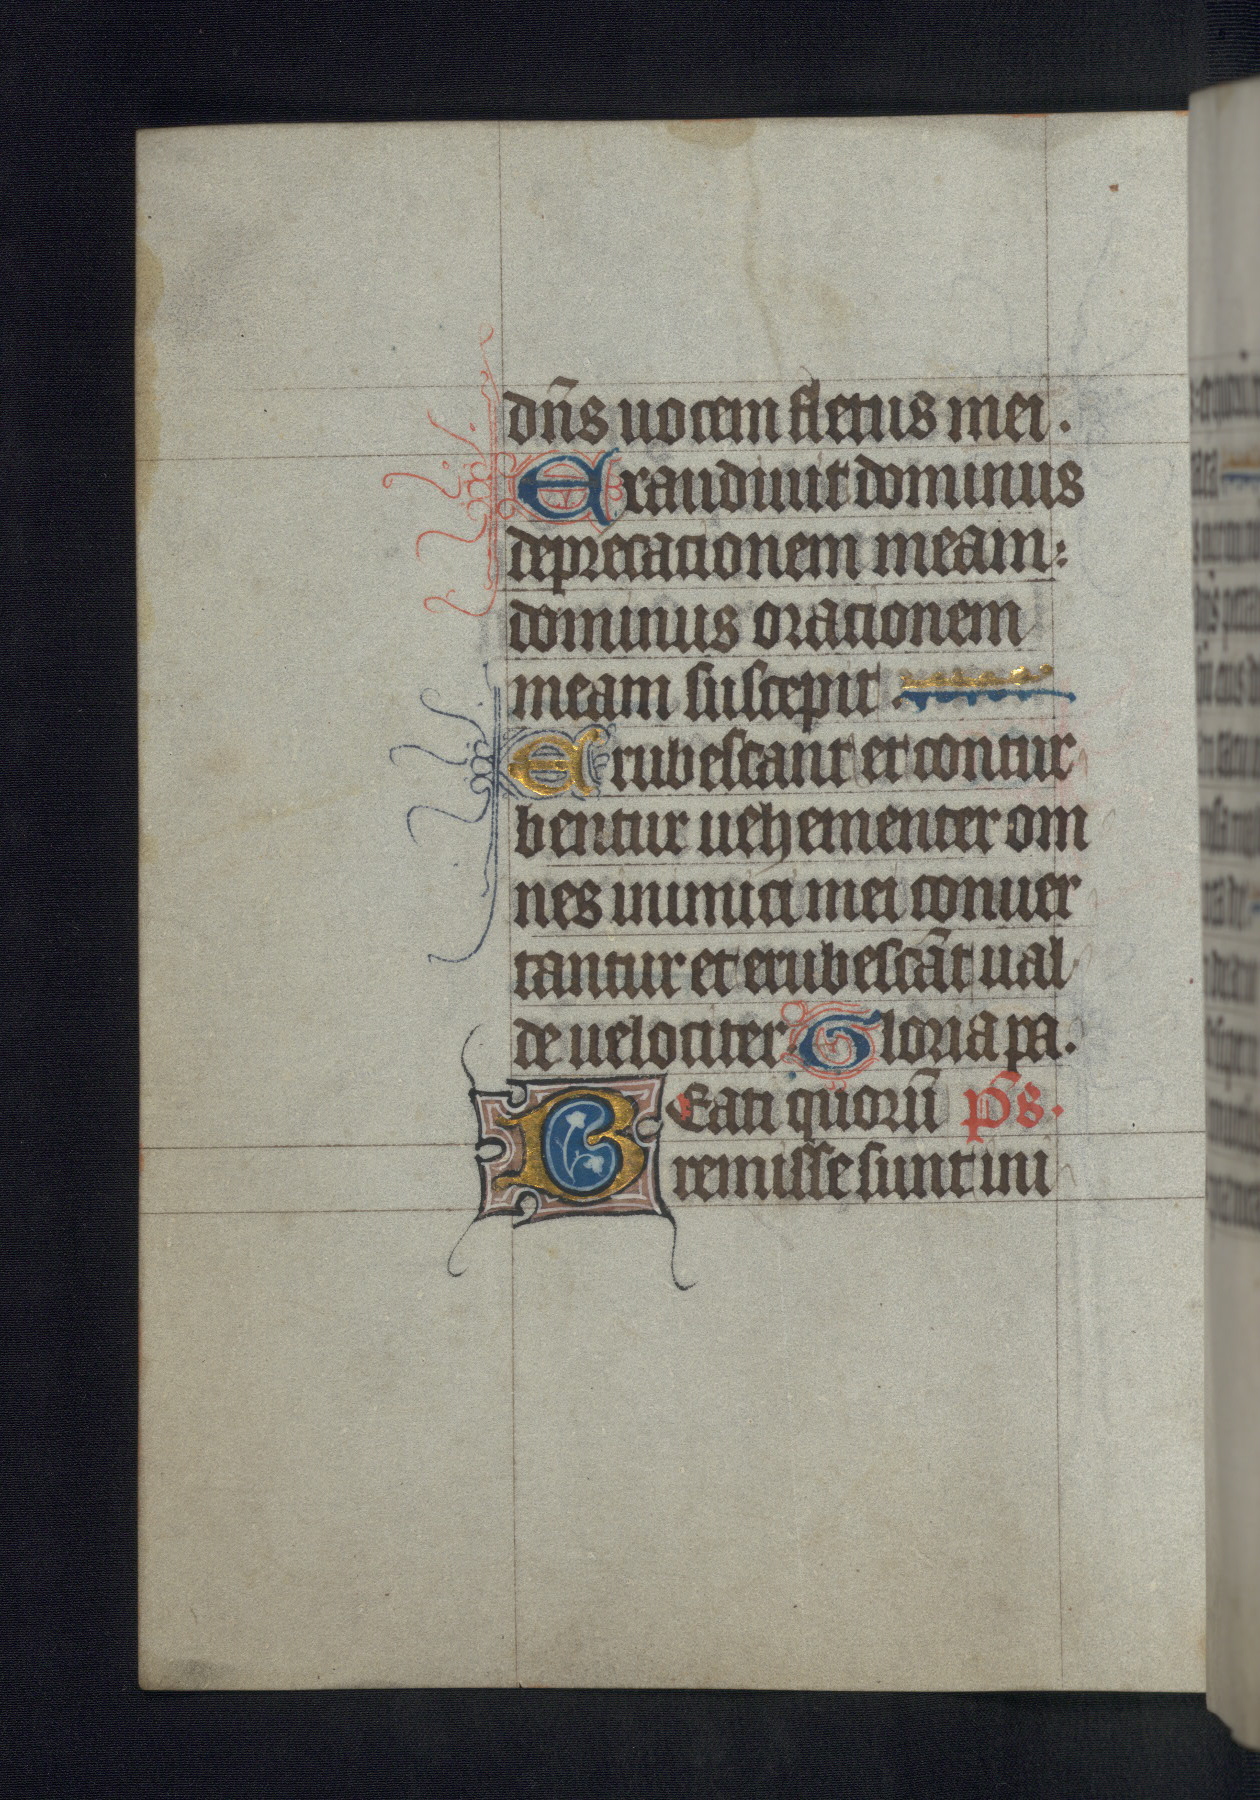 dn̄s uocem fletus mei.
Exaudiuit dominus
deprecationem meam:
dominus orationem
meam suscepit.
Erubescant et contur
bentur uehementer om
nes inimici mei conuer
tantur et erubescāt ual
de uelociter. Gloria pa.
Beati quorū p̄s.
remisse sunt ini